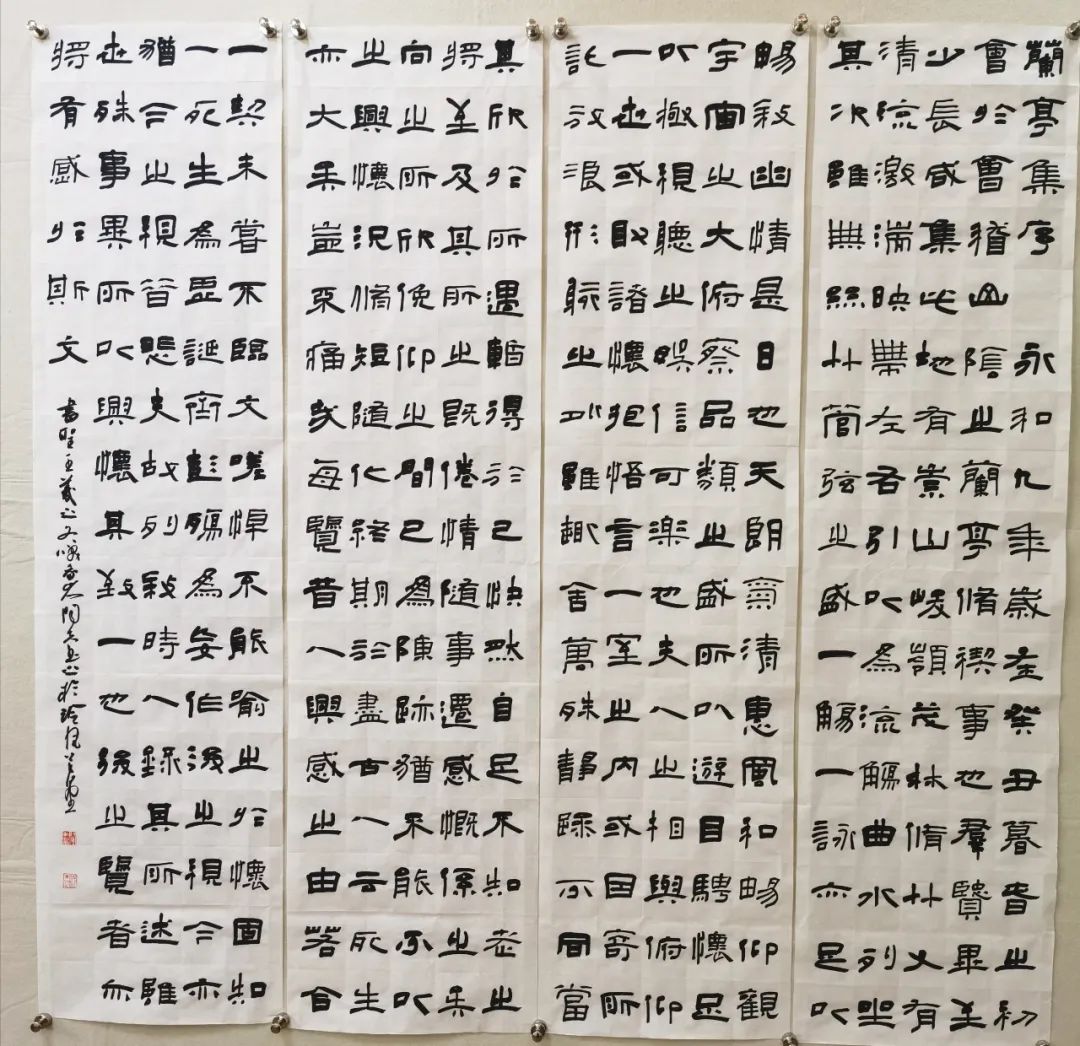 蘭亭集序 永和九年歲在癸丑暮春之初
會於會稽山陰之蘭亭脩禊事也羣賢畢至
少長咸集此地有崇山峻嶺茂林脩竹又有
清流激湍映帶左右引以為流觴曲水列坐
其次雖無絲竹管弦之盛一觴一詠亦足以
暢敘幽情是日也天朗氣清惠風和暢仰觀
宇宙之大俯察品類之盛所以遊目騁懷足
以極視聽之娛信可樂也夫人之相與俯仰
一世或取諸懷抱悟言一室之內或因寄所
託放浪形骸之外雖趣舍萬殊靜躁不同當
其欣於所遇暫得於己快然自足不知老之
將至及其所之既倦情隨事遷感慨係之矣
向之所欣俛仰之間已為陳跡猶不能不以
之興懷況脩短隨化終期於盡古人云死生
亦大矣豈不痛哉每覽昔人興感之由若合
一契未嘗不臨文嗟悼不能喻之於懷固知
一死生為虛誕齊彭殤為妄作後之視今亦
猶今之視昔悲夫故列敘時人錄其所述雖
世殊事異所以興懷其致一也後之覽者亦
將有感於斯文
書聖王羲之文